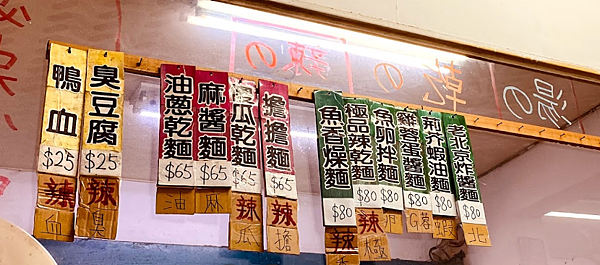 鴨血
$25
辣
血
臭豆腐
$25
辣
臭
油蔥乾麵
$65
油
麻醬麵
$65
麻
傻瓜乾麵
$65
辣
瓜
擔擔麵
$65
辣
擔
魚香燥麵
$80
辣
極品辣乾麵
$80
辣
極
魚卵拌麵
$80
卵
雞蓉蛋醬麵
$80
G蓉
荊芥蝦油麵
$80
蝦
老北京炸醬麵
$80
北
辣の
乾の
湯の